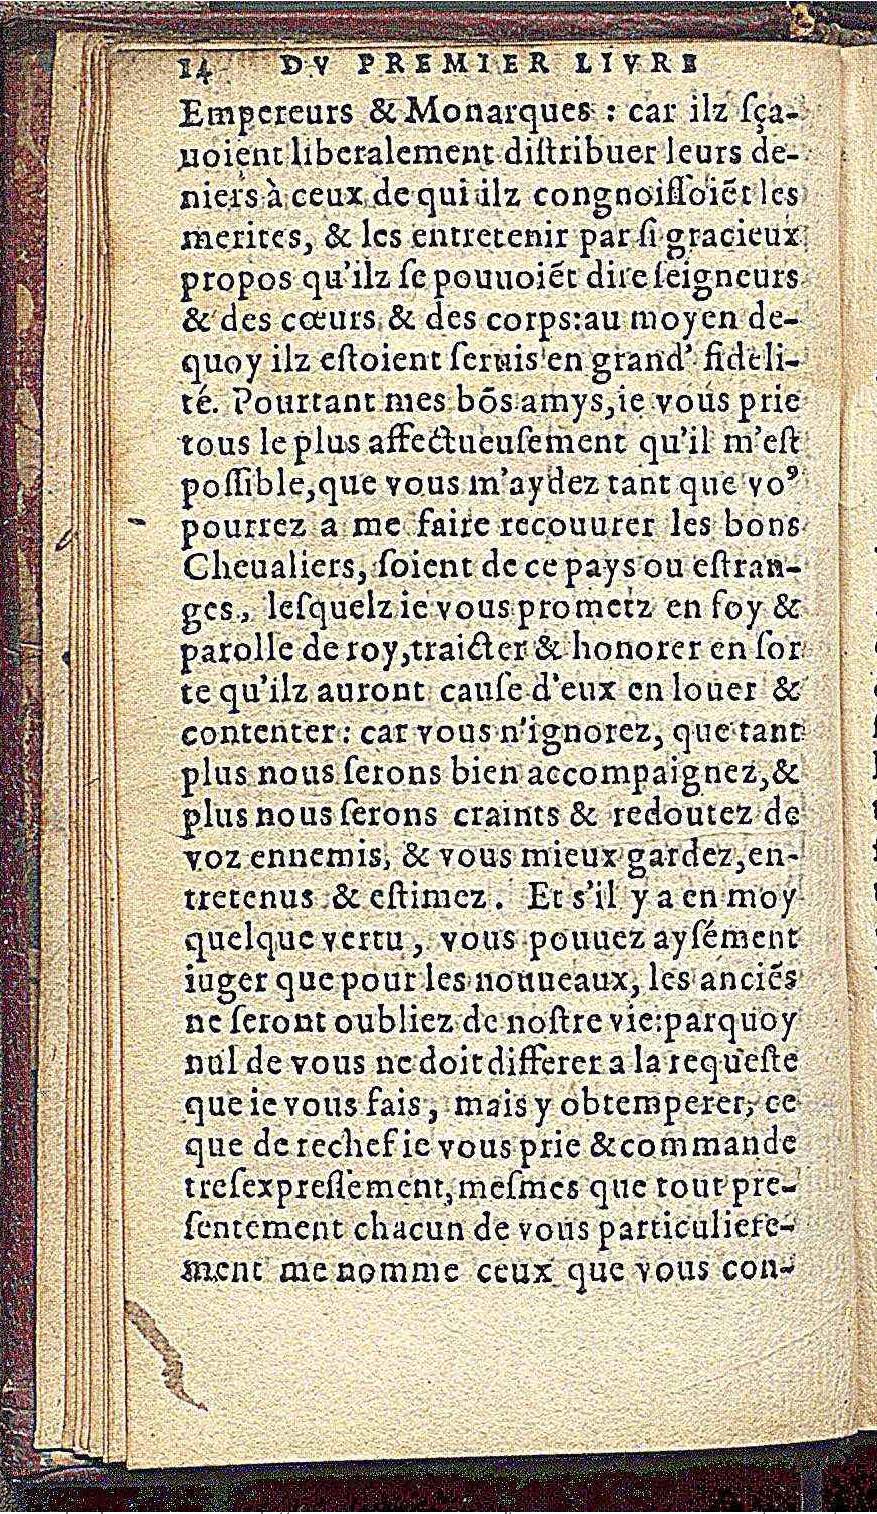 14 DV PREMIER LIVRE
Empereurs & Monarques : car ilz ſça-
uoient liberalement diſtribuer leurs de-
niers à ceux de qui ilz congnoiſſoiẽt les
merites, & les entretenir par ſi gracieux
propos qu'ilz ſe pouuoiẽt dire ſeigneurs
& des cœurs & des corps:au moyen de-
quoy ilz eſtoient ſeruis en grand' fideli-
té. Pourtant mes bõs amys,ie vous prie
tous le plus affectueuſement qu'il m'eſt
poſſible,que vous m'aydez tant que voꝰ
pourrez a me faire recouurer les bons
Cheualiers, ſoient de ce pays ou eſtran-
ges, leſquelz ie vous prometz en foy &
parolle de roy,traicter & honorer en ſor
te qu'ilz auront cauſe d'eux en louer &
contenter : car vous n'ignorez, que tant
plus nous ſerons bien accompaignez,&
plus nous ſerons craints & redoutez de
voz ennemis, & vous mieux gardez,en-
tretenus & eſtimez. Et s'il y a en moy
quelque vertu, vous pouuez ayſément
iuger que pour les nouueaux, les anciẽs
ne ſeront oubliez de noſtre vie:parquoy
nul de vous ne doit differer a la requeſte
que ie vous fais, mais y obtemperer, ce
que de rechef ie vous prie & commande
treſexpreſſement,meſmes que tout pre-
ſentement chacun de vous particuliere-
ment me nomme ceux que vous con-